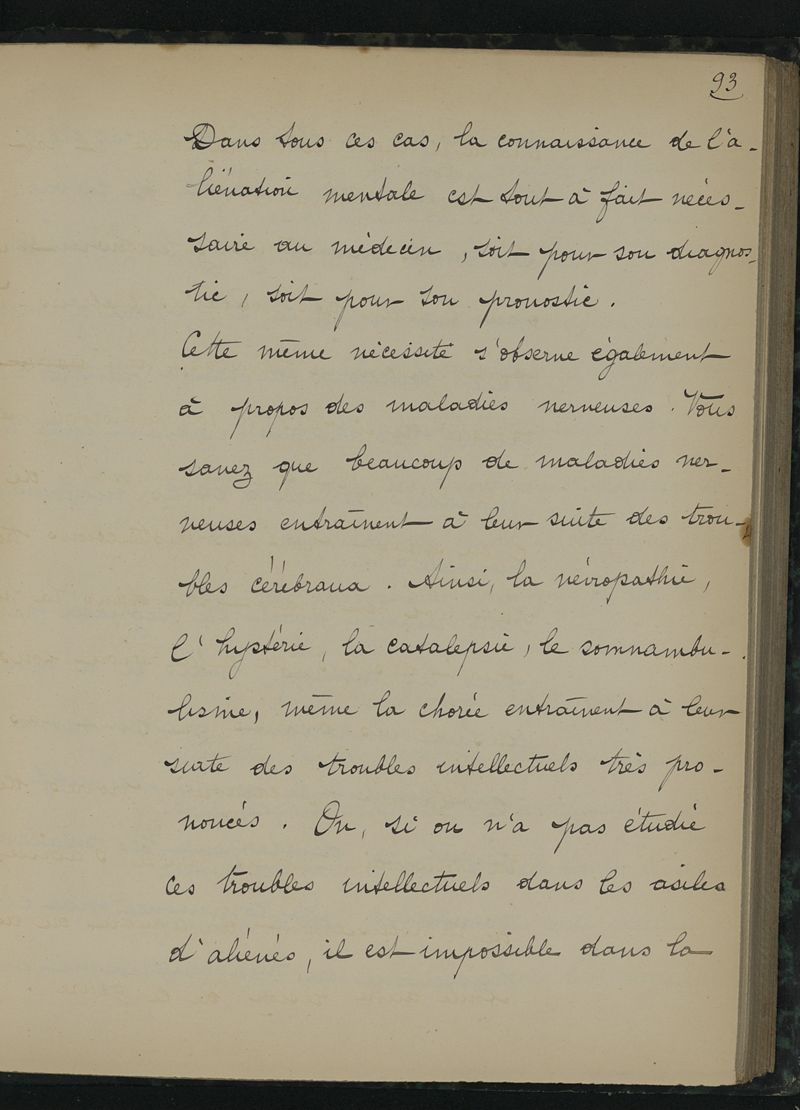 93
Dans tous ces cas, la connaissance de l'a-
liénation mentale est tout à fait néces-
saire au médecin, soit pour son diagnos-
tic, soit pour son pronostic.
Cette même nécessité s'observe également
à propos des maladies nerveuses. Vous
savez que beaucoup de maladies ner-
veuses entraînent à leur suite des trou-
bles cérébraux. Ainsi, la névropathie,
l'hystérie, la catalepsie, le somnambu-
lisme, même la chorée entraînent à leur
suite des troubles intellectuels très pro-
noncés. Or, si on n'a pas étudié
ces troubles intellectuels dans les asiles
d'aliénés, il est impossible dans la